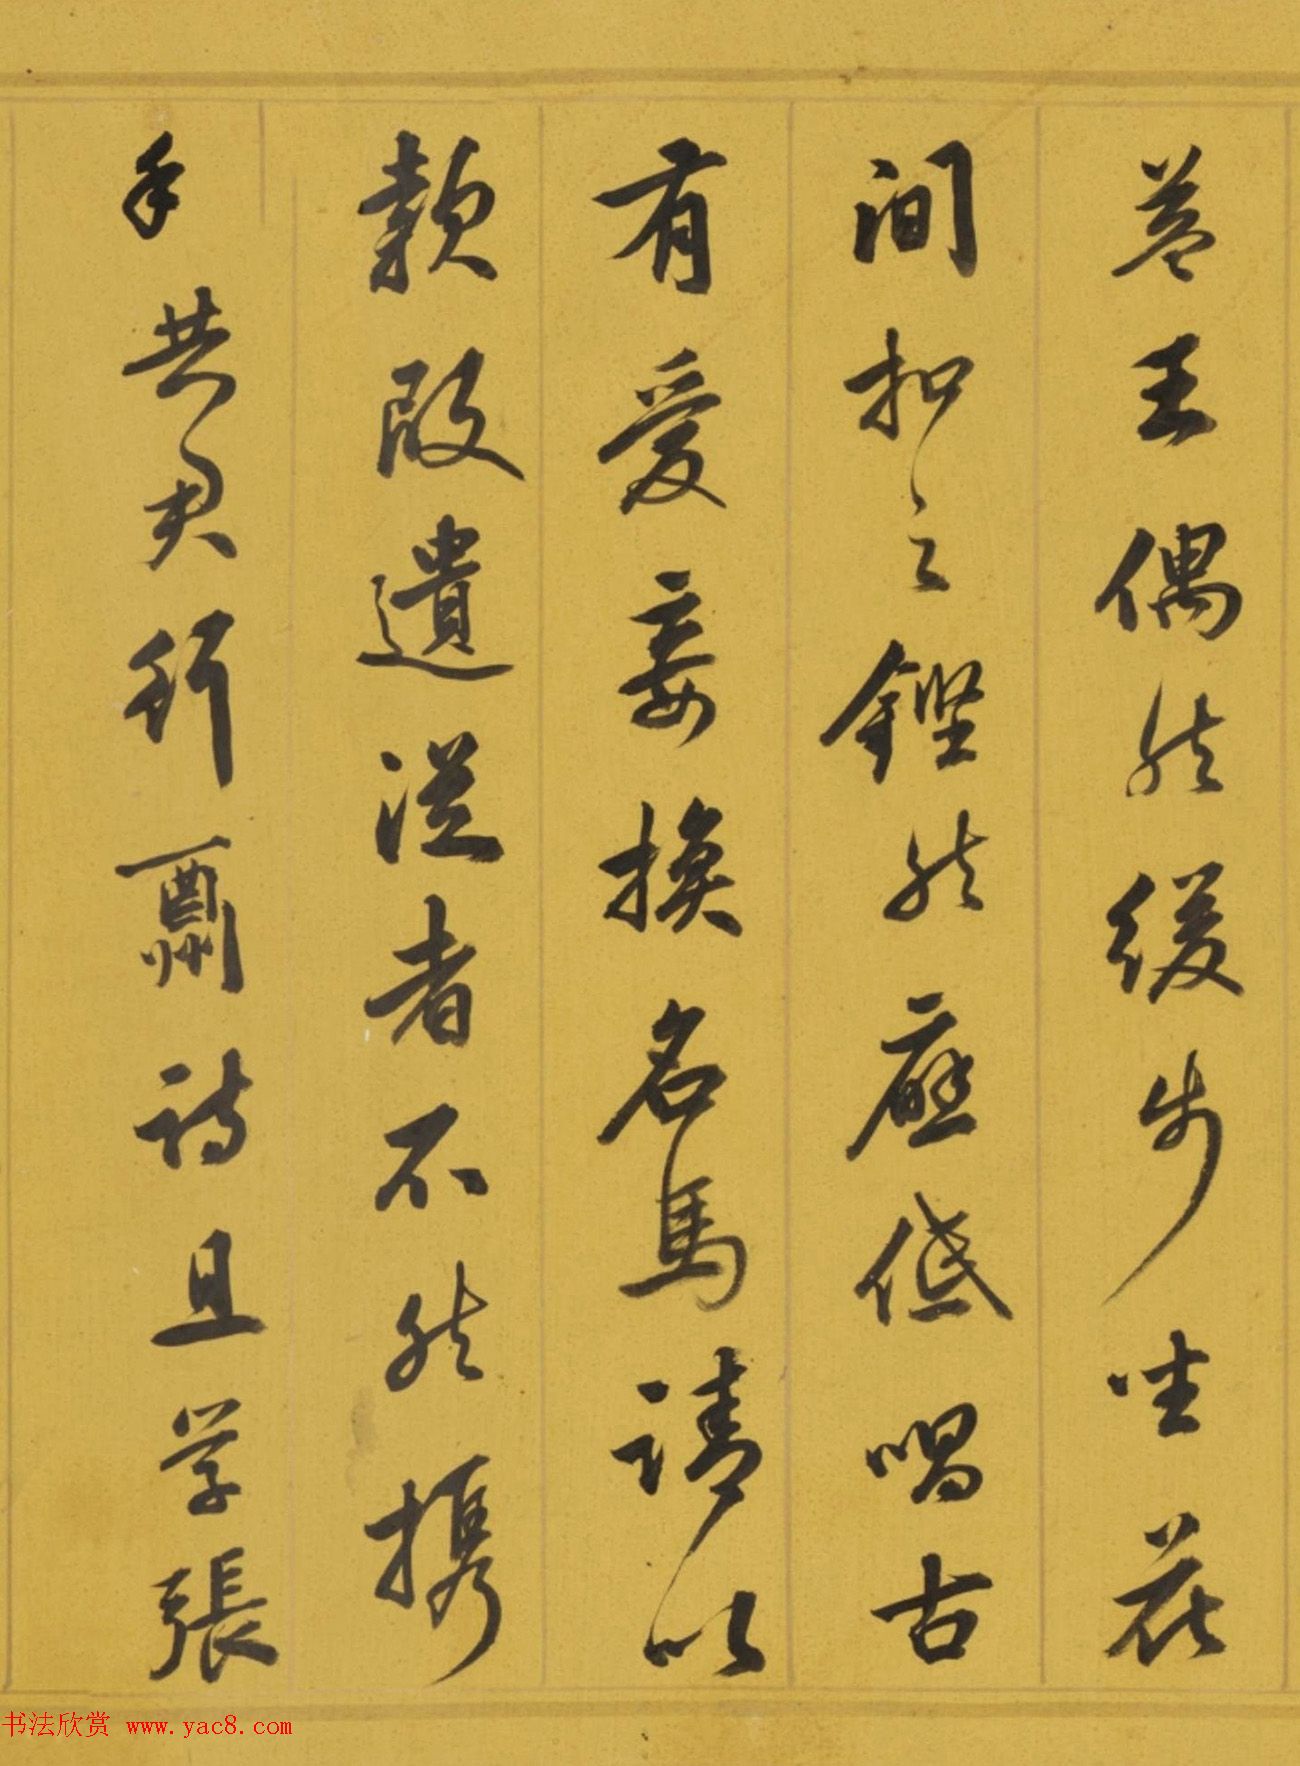 盖王偶然緩步坐花
間扣之鏗然應低唱古
有愛妾換名馬請以
款段遺從者不然攜
手共君行詩且學張
书法欣赏 www.yac8.com